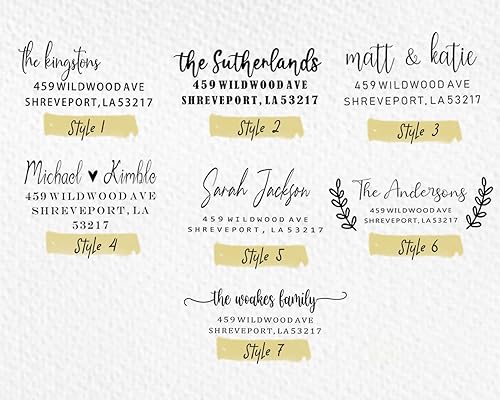 the kingstons
459 WILDWOOD AVE
SHREVEPORT, LA 53217
Style 1
the Sutherlands
459 WILDWOOD AVE
SHREVEPORT, LA 53217
Style 2
matt & katie
459 WILDWOOD AVE
SHREVEPORT, LA 53217
Style 3
Michael ♥ Kimble
459 WILDWOOD AVE
SHREVEPORT, LA
53217
Style 4
Sarah Jackson
459 WILDWOOD AVE
SHREVEPORT, LA 53217
Style 5
The Andersons
459 WILDWOOD AVE
SHREVEPORT, LA 53217
Style 6
the woakes family
459 WILDWOOD AVE
SHREVEPORT, LA 53217
Style 7